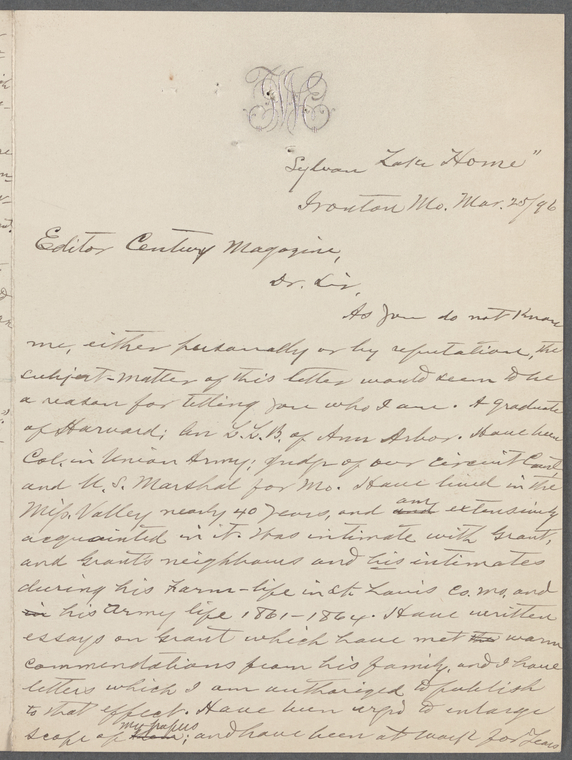 Sylvan Lake Home"
Ironton Mo. Mar. 25/96
Editor Century Magazine,
Dr. Sir,
As you do not know
me, either personally or by reputation, the
subject-matter of this letter would seem to be
a reason for telling you who I am. A graduate
of Harvard; an L.L.B. of Ann Arbor. Have been
Col. in Union Army; Judge of our circuit Court,
and U.S. Marshal for Mo. Have lived in the
Miss. Valley nearly 40 years, and am extensively
acquainted in it. Was intimate with Grant,
and Grant's neighbours and his intimates
during his Farm-life in St. Louis Co. Mo, and
in his Army life 1861-1864. Have written
essays on Grant which have met the warm
commendations from his family, and I have
letters which I am authorized to publish
to that effect. Have been urg'd to enlarge
scope of my papers; and have been at work for years